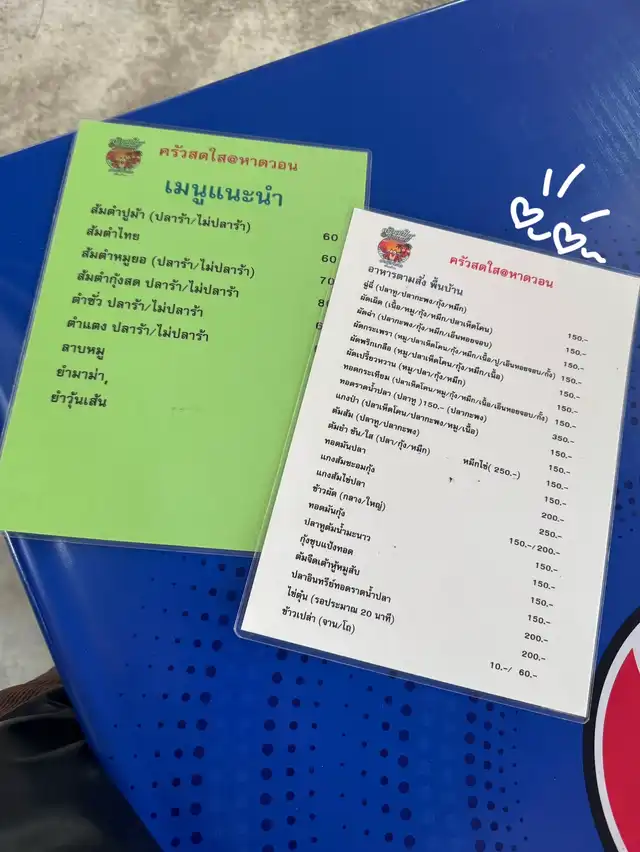 ครัวสดใส@หาดวอน
เมนูแนะนำ
ส้มตำปูม้า (ปลาร้า/ไม่ปลาร้า) 60
ส้มตำไทย
ส้มตำหมูยอ (ปลาร้า/ไม่ปลาร้า) 60
ส้มตำกุ้งสด ปลาร้า/ไม่ปลาร้า 70
ตำซั่ว ปลาร้า/ไม่ปลาร้า
ตำแตง ปลาร้า/ไม่ปลาร้า
ลาบหมู
ยำมาม่า,
ยำวุ้นเส้น
ครัวสดใส@หาดวอน
อาหารตามสั่ง พื้นบ้าน
ฉู่ฉี่ (ปลาทู/ปลากะพง/กุ้ง/หมึก) 150.-
ผัดเผ็ด (เนื้อ/หมู/กุ้ง/หมึก/ปลาเห็ดโคน) 150.-
ผัดฉ่า (ปลากะพง/กุ้ง/หมึก/เอ็นหอยจอบ) 150.-
ผัดกระเพรา (หมู/ปลาเห็ดโคน/กุ้ง/หมึก/เนื้อ/ปู/เอ็นหอยจอบ/กั้ง) 150.-
ผัดพริกเกลือ (หมู/ปลาเห็ดโคน/กุ้ง/หมึก/เนื้อ) 150.-
ผัดเปรี้ยวหวาน (หมู/ปลา/กุ้ง/หมึก) 150.-
ทอดกระเทียม (ปลาเห็ดโคน/หมู/กุ้ง/หมึก/เนื้อ/เอ็นหอยจอบ/กั้ง) 150.-
ทอดราดน้ำปลา (ปลาทู )150.- (ปลากะพง) 350.-
แกงป่า (ปลาเห็ดโคน/ปลากะพง/หมู/เนื้อ) 150.-
ต้มส้ม (ปลาทู/ปลากะพง) 150.-
ต้มยำ ข้น/ใส (ปลา/กุ้ง/หมึก) หมึกไข่( 250.-) 150.-
ทอดมันปลา 150.-
แกงส้มชะอมกุ้ง 200.-
แกงส้มไข่ปลา 250.-
ข้าวผัด (กลาง/ใหญ่) 150.-/200.-
ทอดมันกุ้ง 150.-
ปลาทูต้มน้ำมะนาว 150.-
กุ้งชุบแป้งทอด 150.-
ต้มจืดเต้าหู้หมูสับ 150.-
ปลาอินทรีย์ทอดราดน้ำปลา 200.-
ไข่ตุ๋น (รอประมาณ 20 นาที) 200.-
ข้าวเปล่า (จาน/โถ) 10.-/ 60.-